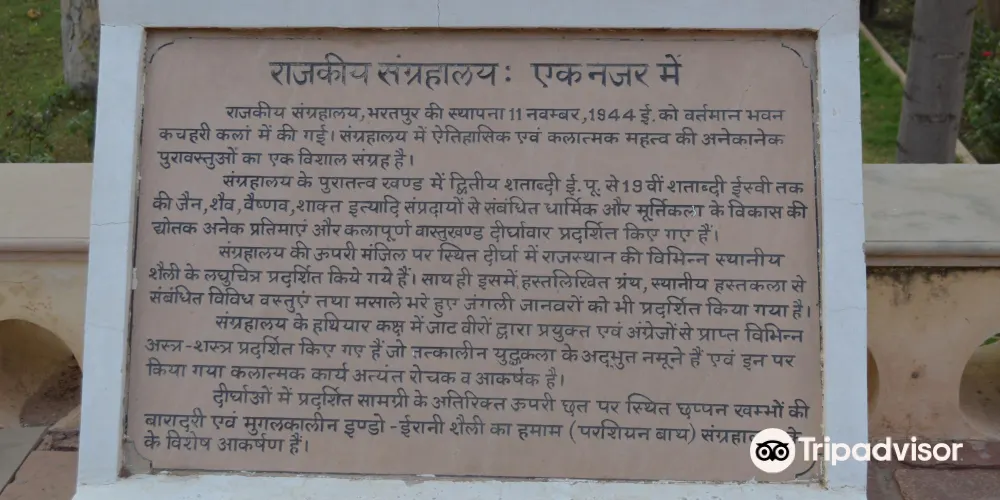 राजकीय संग्रहालय: एक नजर में
राजकीय संग्रहालय, भरतपुर की स्थापना 11 नवम्बर, 1944 ई. को वर्तमान भवन
कचहरी कलां में की गई। संग्रहालय में ऐतिहासिक एवं कलात्मक महत्व की अनेकानेक
पुरावस्तुओं का एक विशाल संग्रह है।
संग्रहालय के पुरातत्व खण्ड में द्वितीय शताब्दी ई. पू. से 19 वीं शताब्दी ईस्वी तक
की जैन, शैव, वैष्णव, शाक्त इत्यादि संप्रदायों से संबंधित धार्मिक और मूर्तिकला के विकास की
द्योतक अनेक प्रतिमाएं और कलापूर्ण वास्तुखण्ड दीर्घावार प्रदर्शित किए गए हैं।
संग्रहालय की ऊपरी मंजिल पर स्थित दीर्घा में राजस्थान की विभिन्न स्थानीय
शैली के लघुचित्र प्रदर्शित किये गये हैं। साथ ही इसमें हस्तलिखित ग्रंथ, स्थानीय हस्तकला से
संबंधित विविध वस्तुएं तथा मसाले भरे हुए जंगली जानवरों को भी प्रदर्शित किया गया है।
संग्रहालय के हथियार कक्ष में जाट वीरों द्वारा प्रयुक्त एवं अंग्रेजों से प्राप्त विभिन्न
अस्त्र-शस्त्र प्रदर्शित किए गए हैं जो तत्कालीन युद्धकला के अद्भुत नमूने हैं एवं इन पर
किया गया कलात्मक कार्य अत्यंत रोचक व आकर्षक है।
दीर्घाओं में प्रदर्शित सामग्री के अतिरिक्त ऊपरी छत पर स्थित छप्पन खम्भों की
बारादरी एवं मुगलकालीन इण्डो-ईरानी शैली का हमाम (परशियन बाथ)
के विशेष आकर्षण हैं।
Tripadvisor